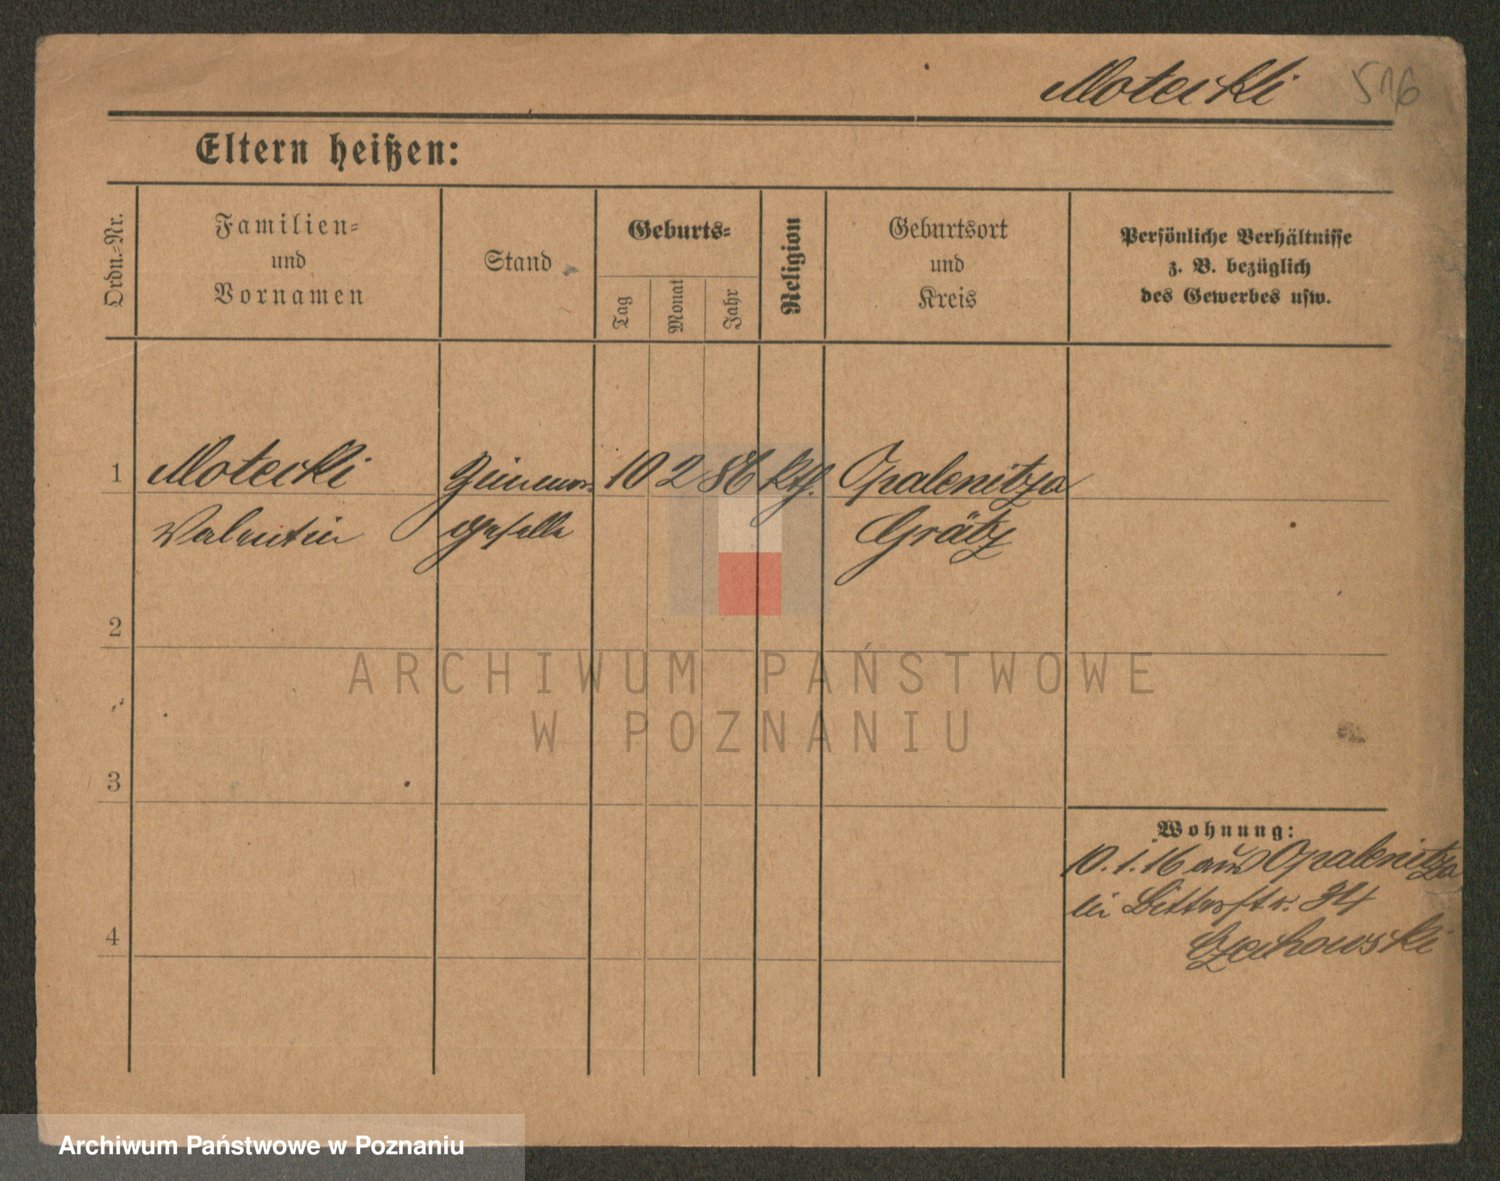 Motecki 516
Eltern heißen:
Ordn.-Nr.
Familien-
und
Vornamen
Stand
Geburts-
Tag
Monat
Jahr
Religion
Geburtsort
und
Kreis
Persönliche Verhältnisse
z. B. bezüglich
des Gewerbes usw.
1 Motecki 10 2 86 kth. Opalenitza
Valentin Geselle Grätz
2
ARCHIWUM PAŃSTWOWE
W POZNANIU
3
Wohnung:
10.1.16 aus Opalenitza
bei Bitterstr. 34
4
Czechowski
Archiwum Państwowe w Poznaniu